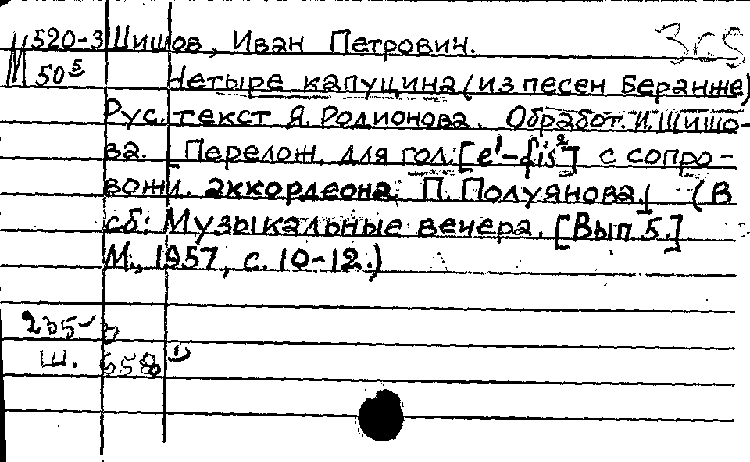 М 520-3 Шишов, Иван Петрович. 365
50⁵ Четыре капуцина (из песен Беранже)
Рус. текст Я. Родионова. Обработ. И. Шишо-
ва. [Перелож. для гол. [e¹-fis²] с сопро-
вожд. аккордеона П. Полуянова.] (В
сб: Музыкальные вечера. [Вып. 5.]
М., 1957, с. 10-12.)
Ш.